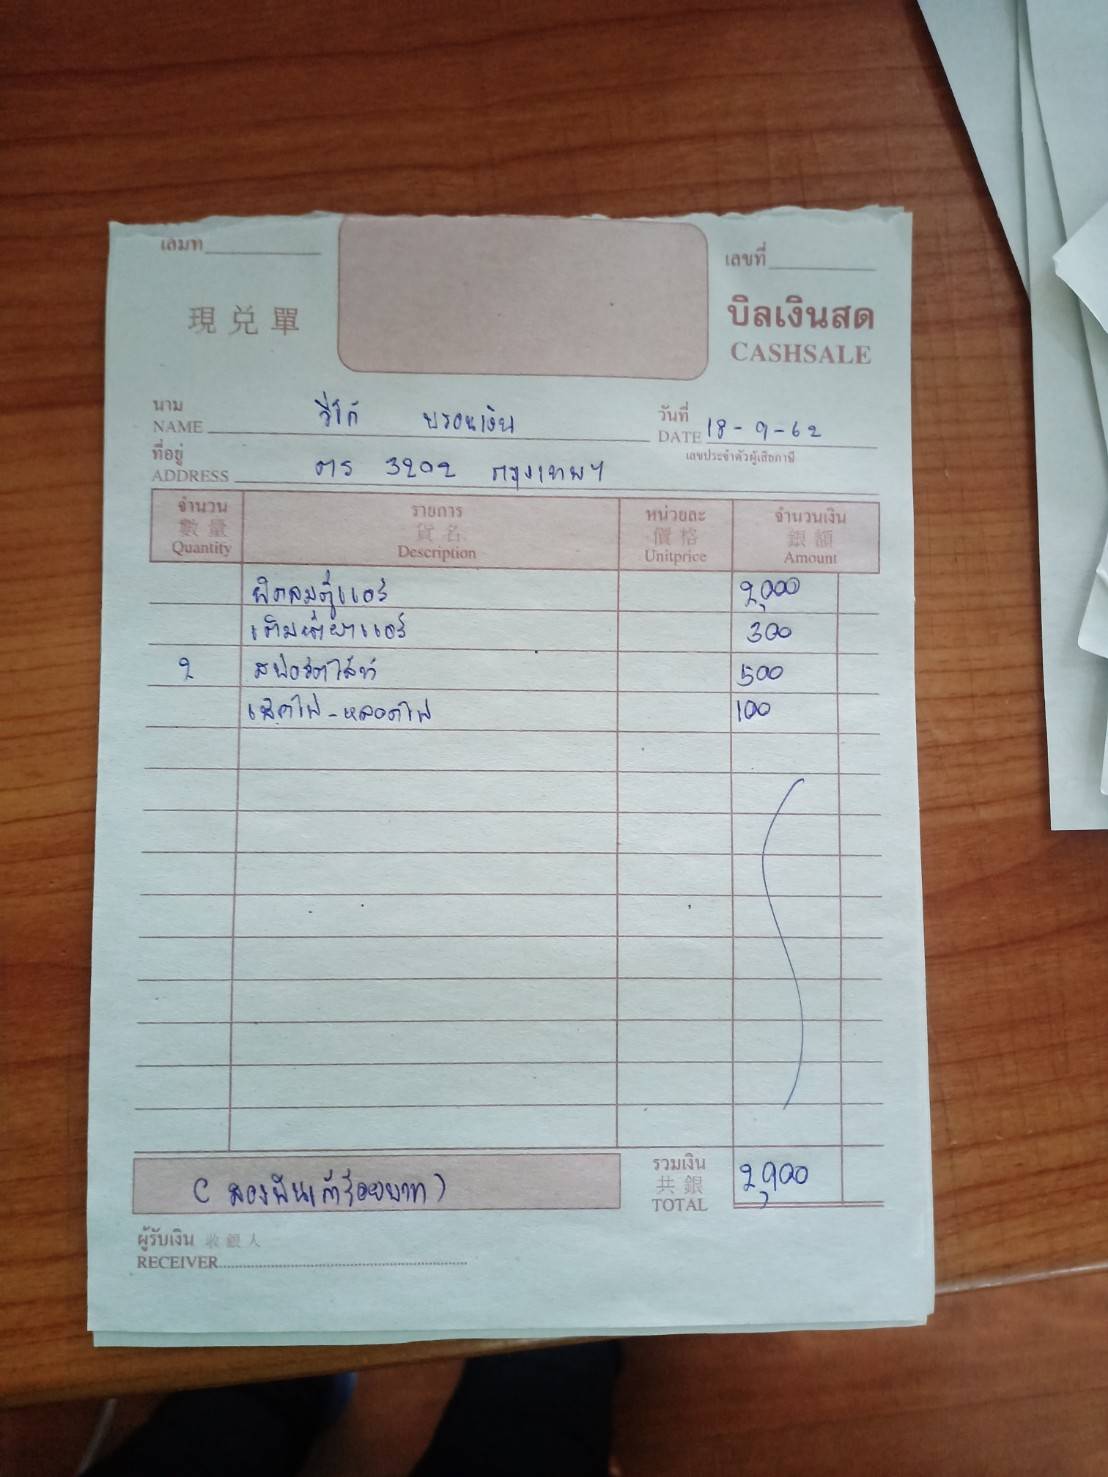 เล่มที่
เลขที่
現兑單
บิลเงินสด
CASHSALE
นาม
NAME วีโก้ บรอนเงิน
วันที่
DATE 18-9-62
เลขประจำตัวผู้เสียภาษี
ที่อยู่
ADDRESS ตร 3202 กรุงเทพฯ
จำนวน รายการ หน่วยละ จำนวนเงิน
數量 貨名 價格 銀額
Quantity Description Unitprice Amount
พัดลมตู้แอร์ 2,000
เติมน้ำยาแอร์ 300
2 สปอร์ตไลท์ 500
เช็คไฟ-หลอดไฟ 100
(สองพันเก้าร้อยบาท)
รวมเงิน
共銀
TOTAL 2,900
ผู้รับเงิน 收銀人
RECEIVER